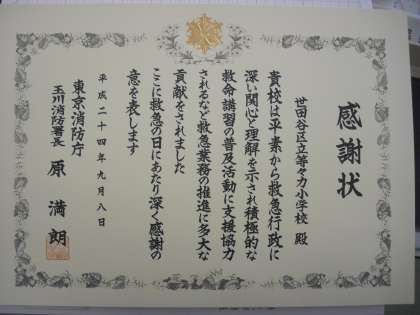 感謝状
世田谷区立等々力小学校 殿
貴校は平素から救急行政に
深い関心と理解を示され積極的な
救命講習の普及活動に支援協力
されるなど救急業務の推進に多大な
貢献をされました
ここに救急の日にあたり深く感謝の
意を表します
平成二十四年九月八日
東京消防庁
玉川消防署長 原 満朗